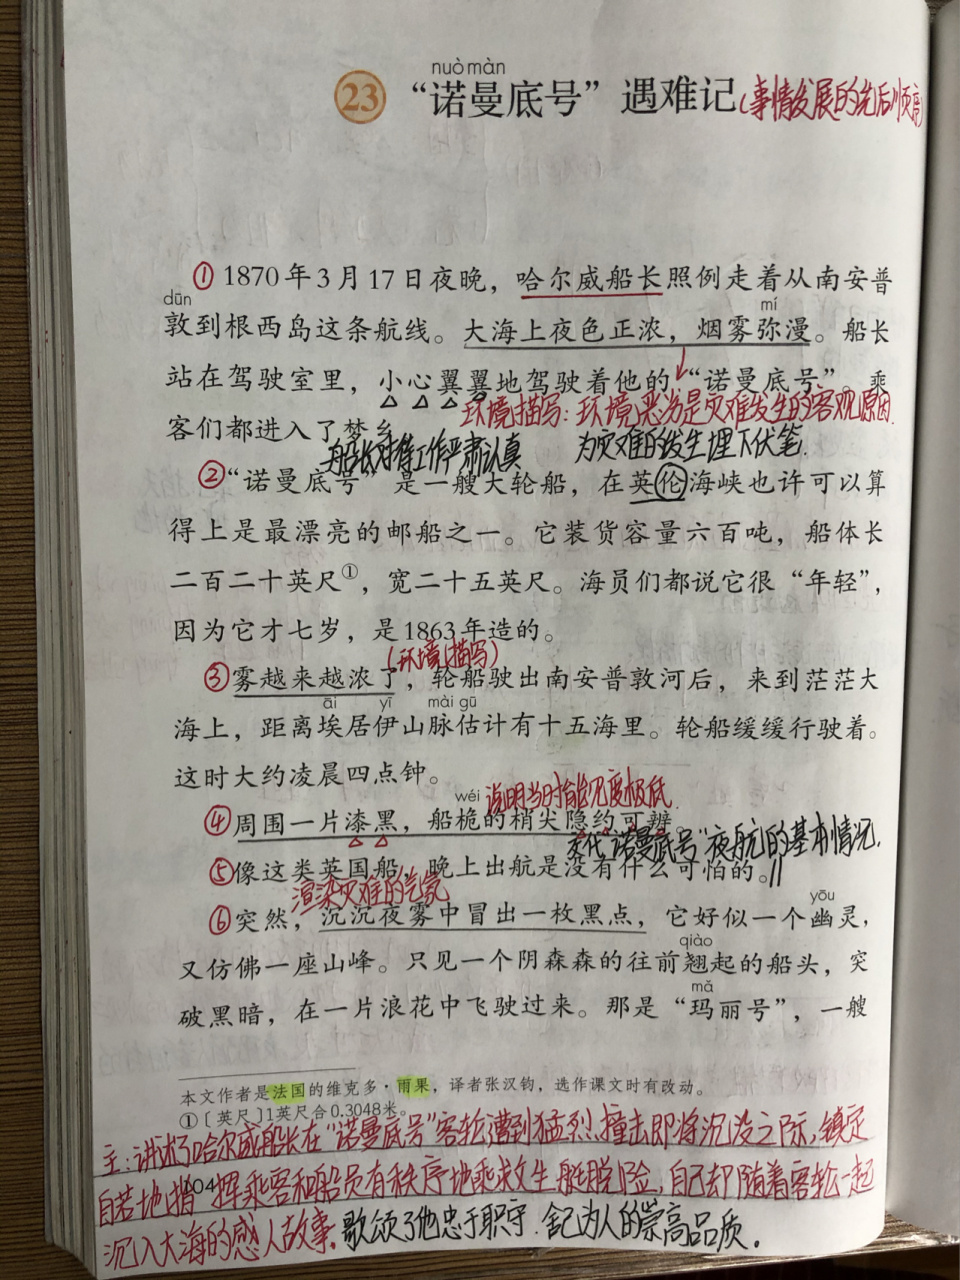 nuò màn
23 “诺曼底号”遇难记(事情发展的先后顺序)
① 1870年3月17日夜晚，哈尔威船长照例走着从南安普
dūn mí
敦到根西岛这条航线。大海上夜色正浓，烟雾弥漫。船长
站在驾驶室里，小心翼翼地驾驶着他的“诺曼底号”。乘
环境描写：环境恶劣是灾难发生的客观原因
客们都进入了梦乡
船长对待工作严肃认真 为灾难的发生埋下伏笔.
②“诺曼底号”是一艘大轮船，在英伦海峡也许可以算
得上是最漂亮的邮船之一。它装货容量六百吨，船体长
二百二十英尺①，宽二十五英尺。海员们都说它很“年轻”，
因为它才七岁，是1863年造的。
(环境描写)
③雾越来越浓了，轮船驶出南安普敦河后，来到茫茫大
āi yī mài gū
海上，距离埃居伊山脉估计有十五海里。轮船缓缓行驶着。
这时大约凌晨四点钟。
wéi 说明当时能见度极低.
④周围一片漆黑，船桅的梢尖隐约可辨。
交代“诺曼底号”夜航的基本情况.
⑤像这类英国船，晚上出航是没有什么可怕的。//
渲染灾难的气氛
yōu
⑥突然，沉沉夜雾中冒出一枚黑点，它好似一个幽灵，
qiào
又仿佛一座山峰。只见一个阴森森的往前翘起的船头，突
mǎ
破黑暗，在一片浪花中飞驶过来。那是“玛丽号”，一艘
本文作者是法国的维克多·雨果，译者张汉钧，选作课文时有改动。
①〔英尺〕1英尺合0.3048米。
主：讲述了哈尔威船长在“诺曼底号”客轮遭到猛烈撞击即将沉没之际，镇定
104
自若地指挥乘客和船员有秩序地乘救生艇脱险，自己却随着客轮一起
沉入大海的感人故事。歌颂了他忠于职守.舍己为人的崇高品质.